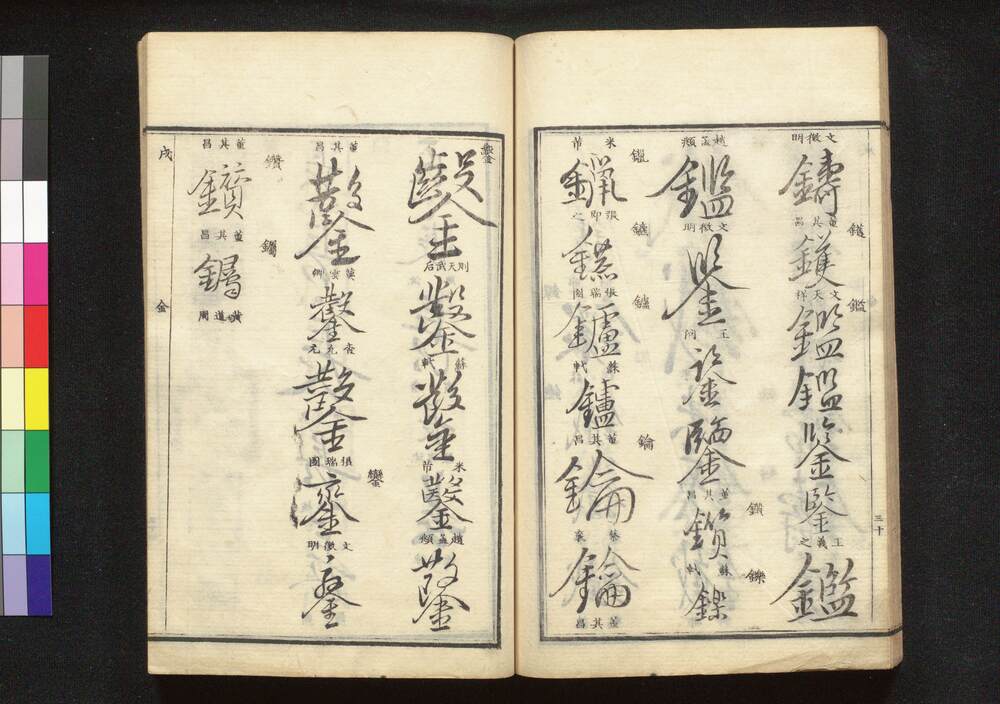 三十
鑊
鑑
文徵明
鑄
董其昌
鑊
文天祥
鑑
鑑
鑒
鑒
王羲之
鑑
鑕
鑠
趙孟頫
鑑
文徵明
鑒
王問
鑒
鑒
董其昌
鑕
蘇軾
鑠
鑞
鑣
鑪
鑰
米芾
鑞
張即之
鑣
張瑞圖
鑪
蘇軾
鑪
董其昌
鑰
蔡襄
鑰
董其昌
鑿
鑿
則天武后
鑿
蘇軾
鑿
米芾
鑿
趙孟頫
鑿
鑾
董其昌
鑿
鑿
鑿
張瑞圖
鑾
文徵明
鑾
鑽
董其昌
鑽
董其昌
黃道周
戌
金